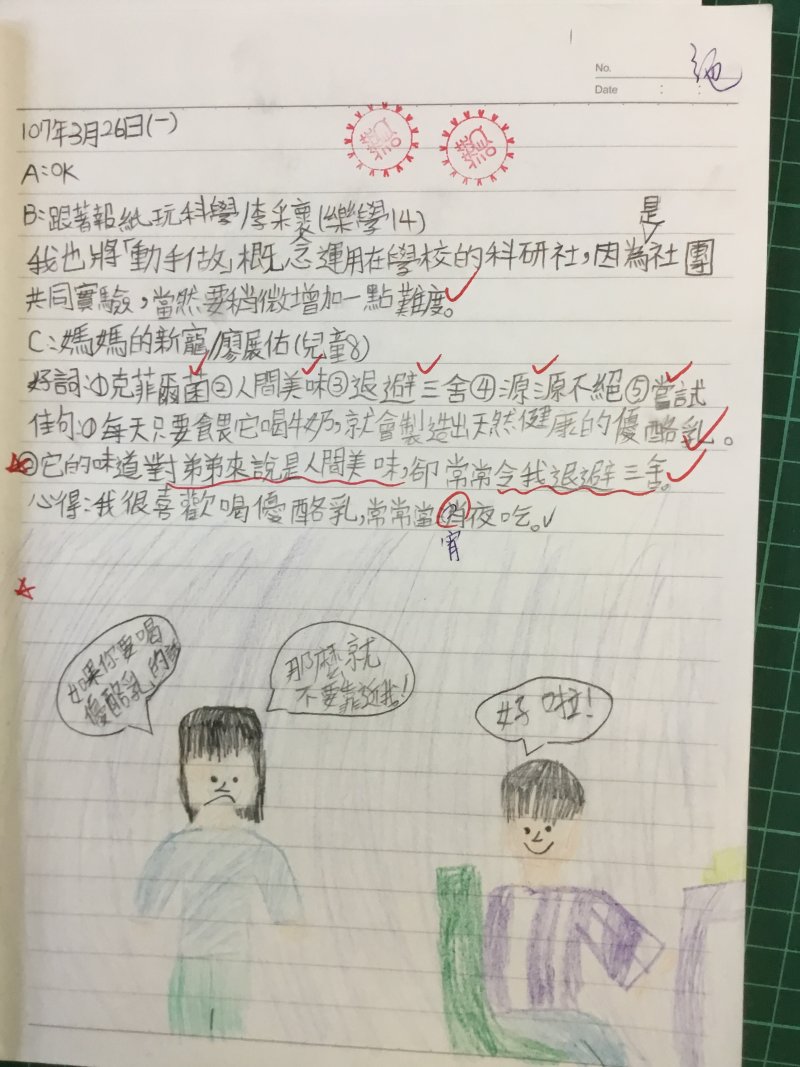 No.
Date : :
107年3月26日(一)
A:OK
B:跟著報紙玩科學/李采襄(樂學14)
是
我也將「動手做」概念運用在學校的科研社,因為社團
共同實驗,當然要稍微增加一點難度。
C:媽媽的新寵/廖展佑(兒童8)
好詞:①克菲爾菌②人間美味③退避三舍④源源不絕⑤嘗試
佳句:①每天只要餵它喝牛奶,就會製造出天然健康的優酪乳。
②它的味道對弟弟來說是人間美味,卻常常令我退避三舍。
心得:我很喜歡喝優酪乳,常常當消夜吃。
宵
如果你要喝
優酪乳的話
那麼就
不要靠近我!
好啦!